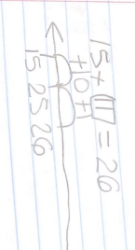 15 + 11 = 26
+10 +1
15 25 26